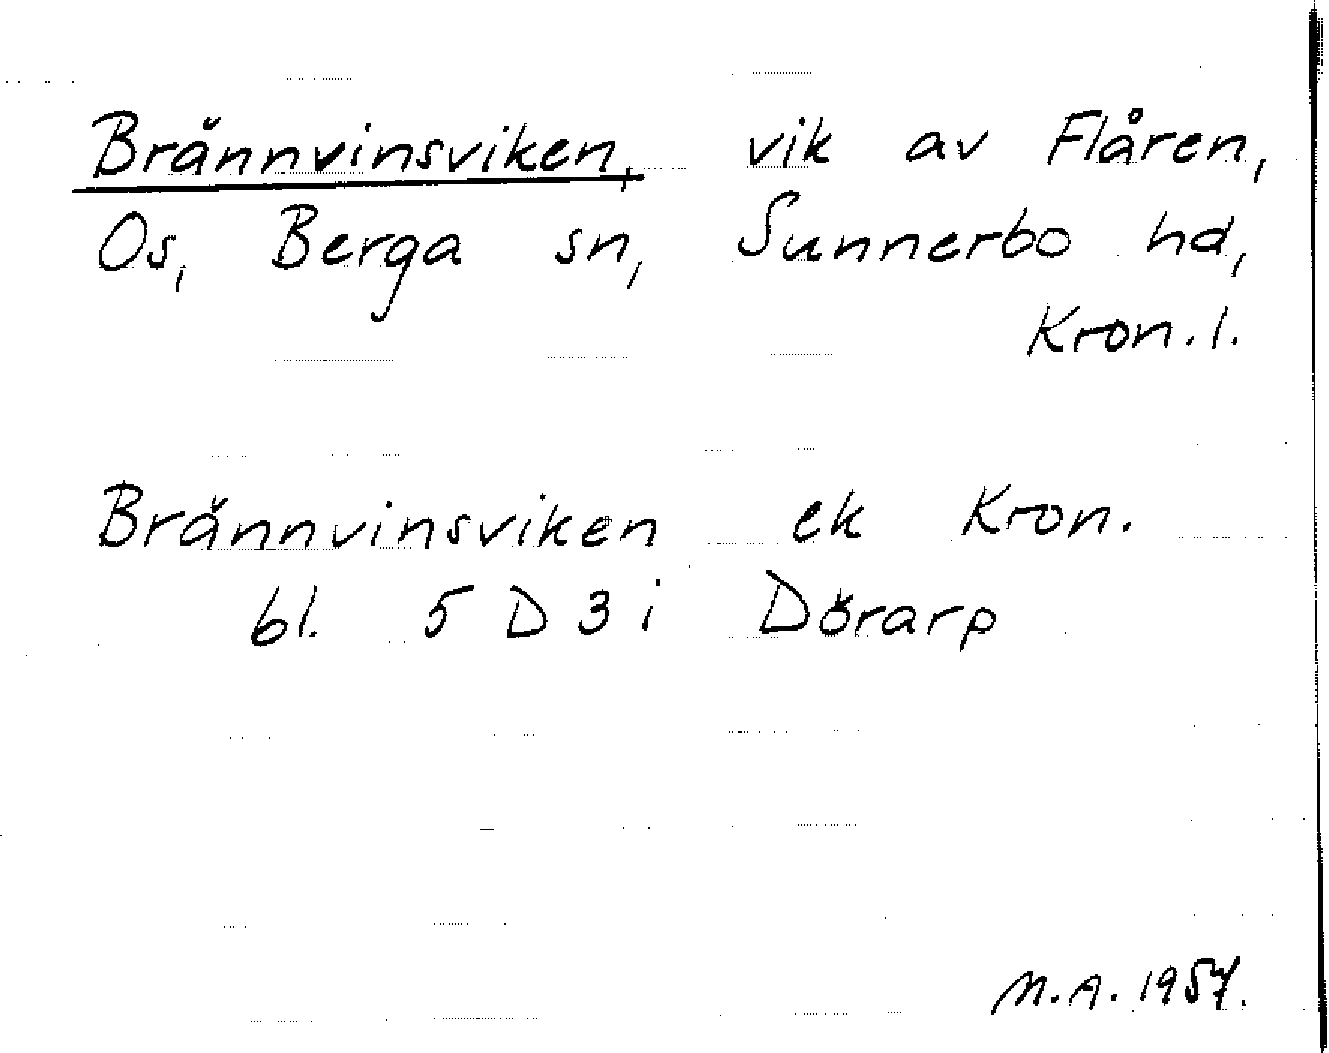 Brännvinsviken, vik av Flåren,
Os, Berga sn, Sunnerbo hd,
Kron.l.
Brännvinsviken ek Kron.
bl. 5 D 3 i Dörarp
M.A. 1957.